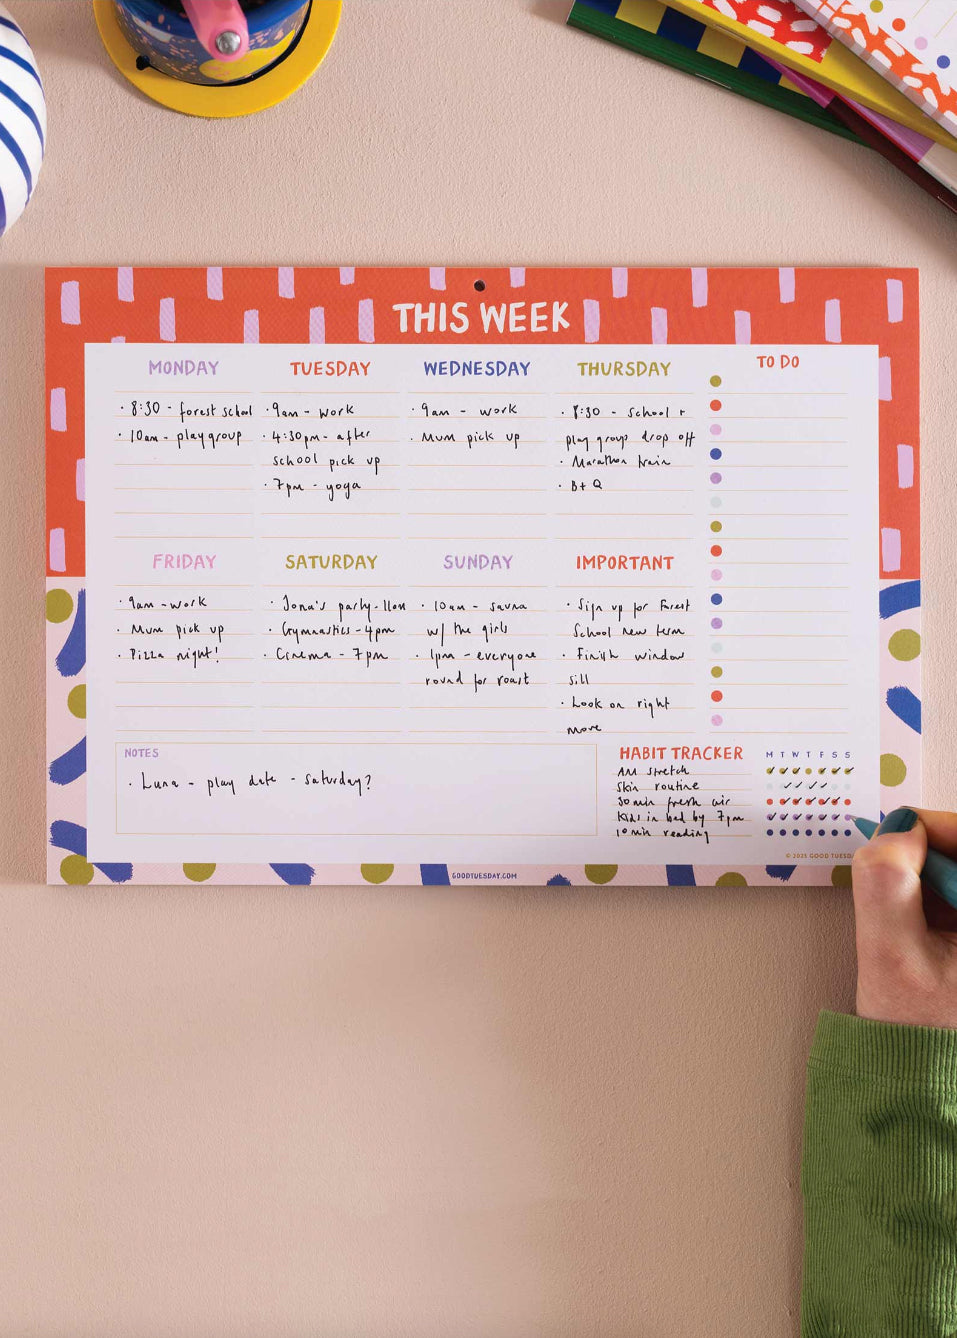 THIS WEEK
MONDAY
· 8:30 - forest school
· 10am - playgroup
TUESDAY
· 9am - work
· 4:30pm - after
school pick up
· 7pm - yoga
WEDNESDAY
· 9am - work
· Mum pick up
THURSDAY
· 8:30 - school +
play group drop off
· Marathon train
· B+Q
TO DO
FRIDAY
· 9am - work
· Mum pick up
· Pizza night!
SATURDAY
· Jona's party - 11am
· Gymnastics - 4pm
· Cinema - 7pm
SUNDAY
· 10am - sauna
w/ the girls
· 1pm - everyone
round for roast
IMPORTANT
· Sign up for Forest
School new term
· Finish window
sill
· Look on right
move
NOTES
· Luna - play date - saturday?
HABIT TRACKER M T W T F S S
AM stretch
Skin routine
30min fresh air
Kids in bed by 7pm
10min reading
© 2025 GOOD TUESDA
GOODTUESDAY.COM